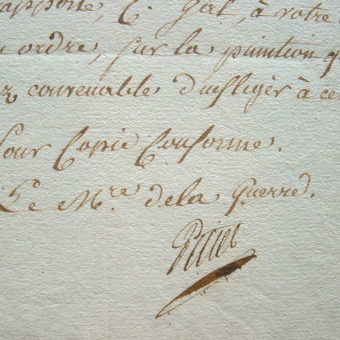 apporte, C. Gal, à votre
ordre, sur la punition q
z convenable d'infliger à ce
Pour Copie Conforme.
Le Mre. de la Guerre.